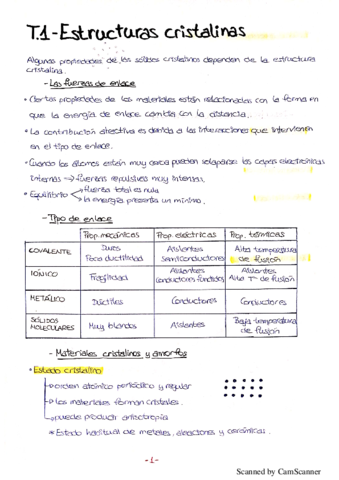 T.1-Estructuras cristalinas
Algunas propiedades de los sólidos cristalinos dependen de la estructura
cristalina.
- Las fuerzas de enlace
• Ciertas propiedades de los materiales están relacionadas con la forma en
que la energía de enlace cambia con la distancia.
• La contribución atractiva es debida a las interacciones que intervienen
en el tipo de enlace.
• Cuando los átomos están muy cerca pueden solaparse las capas electrónicas
internas → fuerzas repulsivas muy intensas.
• Equilibrio fuerza total es nula
la energía presenta un mínimo.
- Tipo de enlace
Prop. mecánicas Prop. eléctricas Prop. térmicas
COVALENTE Duros Aislantes Alta temperatura
Poca ductilidad Semiconductores de fusión
IÓNICO Fragilidad Aislantes Aislantes
Conductores fundidos Alta Tª de fusión
METÁLICO Dúctiles Conductores Conductores
SÓLIDOS MOLECULARES Muy blandos Aislantes Baja temperatura
de fusión
- Materiales cristalinos y amorfos
• Estado cristalino
→ orden atómico periódico y regular
→ los materiales forman cristales.
→ puede producir anisotropía
* Estado habitual de metales, aleaciones y cerámicas.
-1-
Scanned by CamScanner